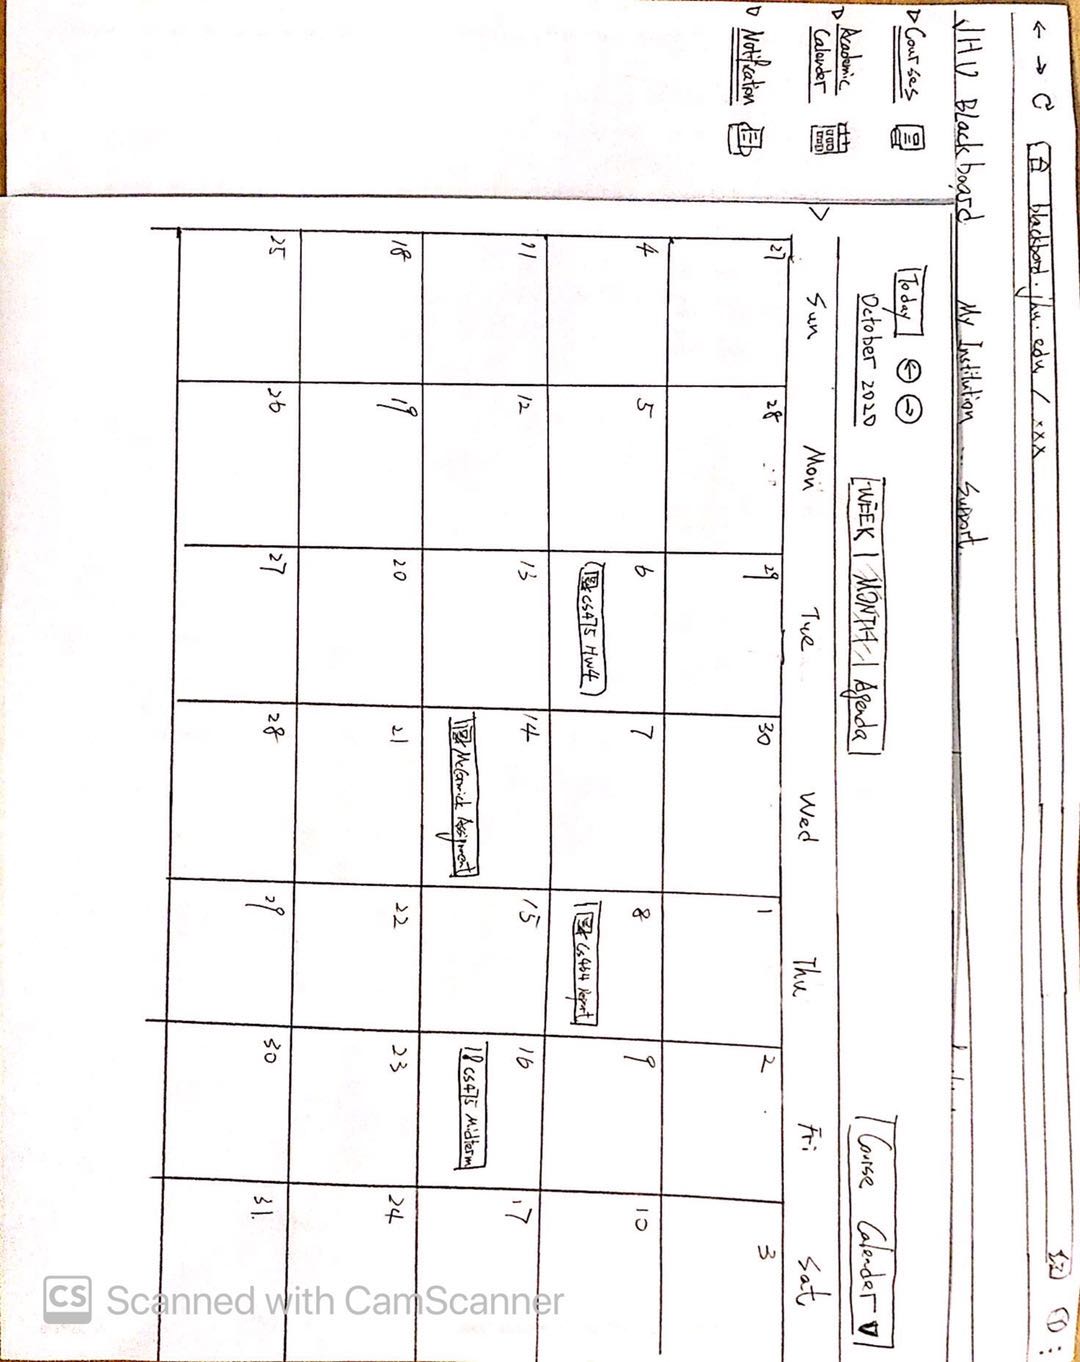 blackbord.jhu.edu / xxx
JHU Blackboard My Institution ... Support.
Courses
Academic Calender
Notification
Today
October 2020
WEEK | MONTH | Agenda
Course Calender
Sun Mon Tue Wed Thu Fri Sat
27 28 29 30 1 2 3
4 5 6 7 8 9 10
CS475 HW4
CS464 Report
11 12 13 14 15 16 17
McCormick Assignment
CS475 Midterm
18 19 20 21 22 23 24
25 26 27 28 29 30 31.
CS Scanned with CamScanner